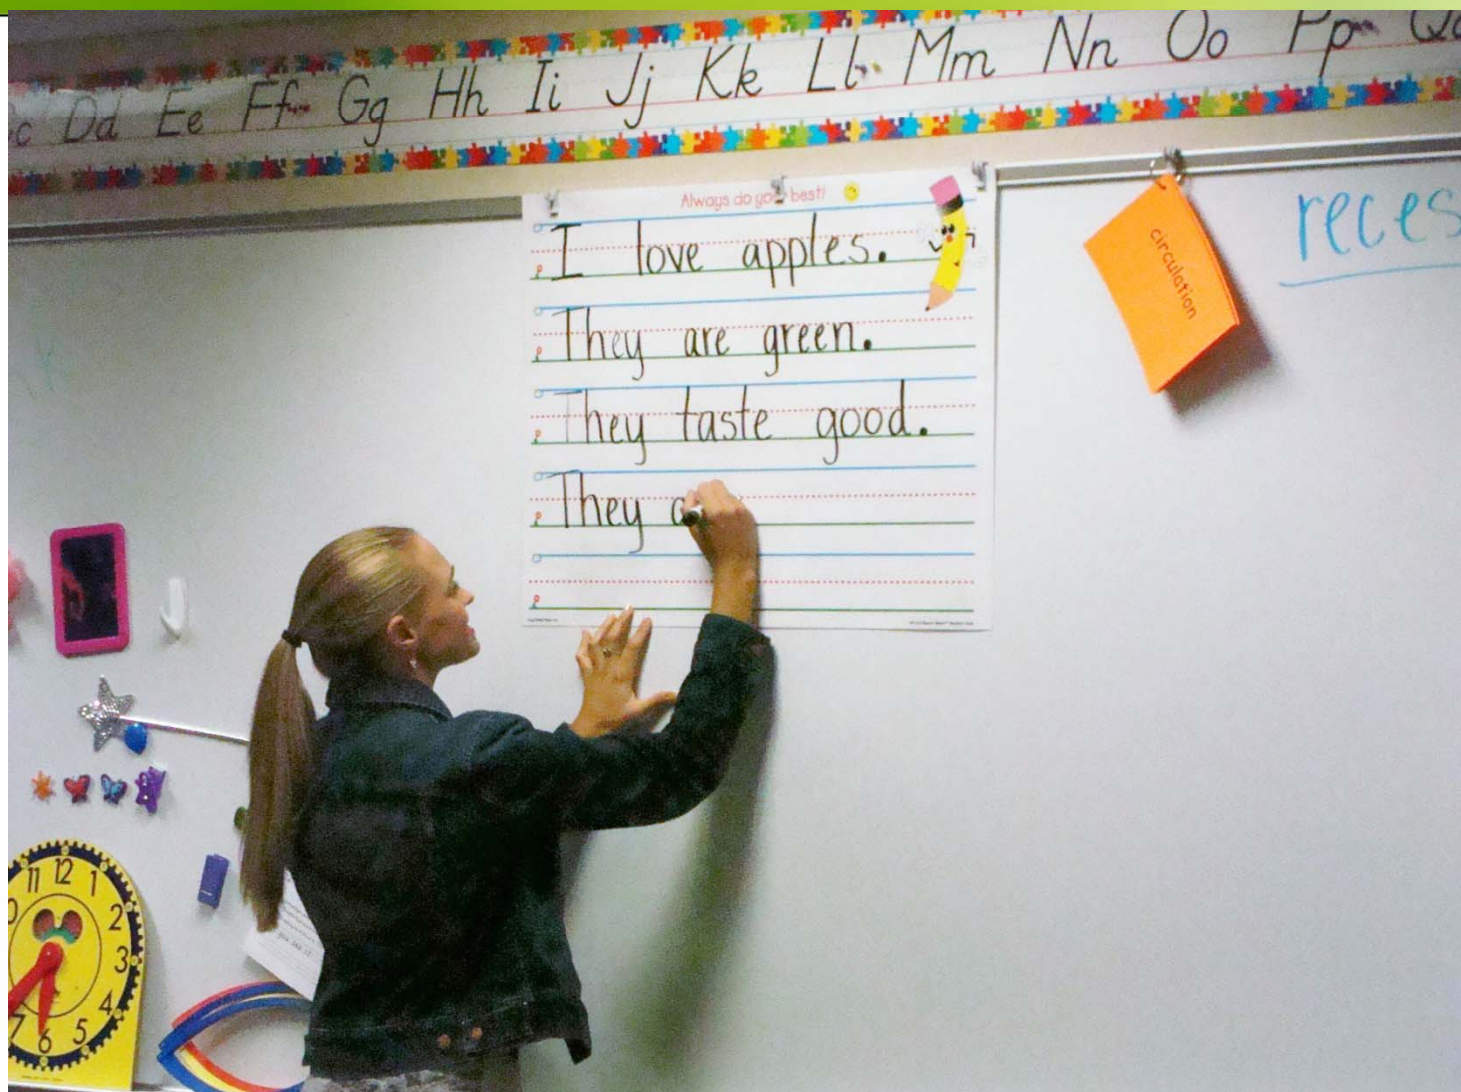 Dd Ee Ff Gg Hh Ii Jj Kk Ll Mm Nn Oo Pp
Always do your best!
I love apples.
They are green.
They taste good.
They a
circulation
reces
11 12 1
2
3
4
5
6
7